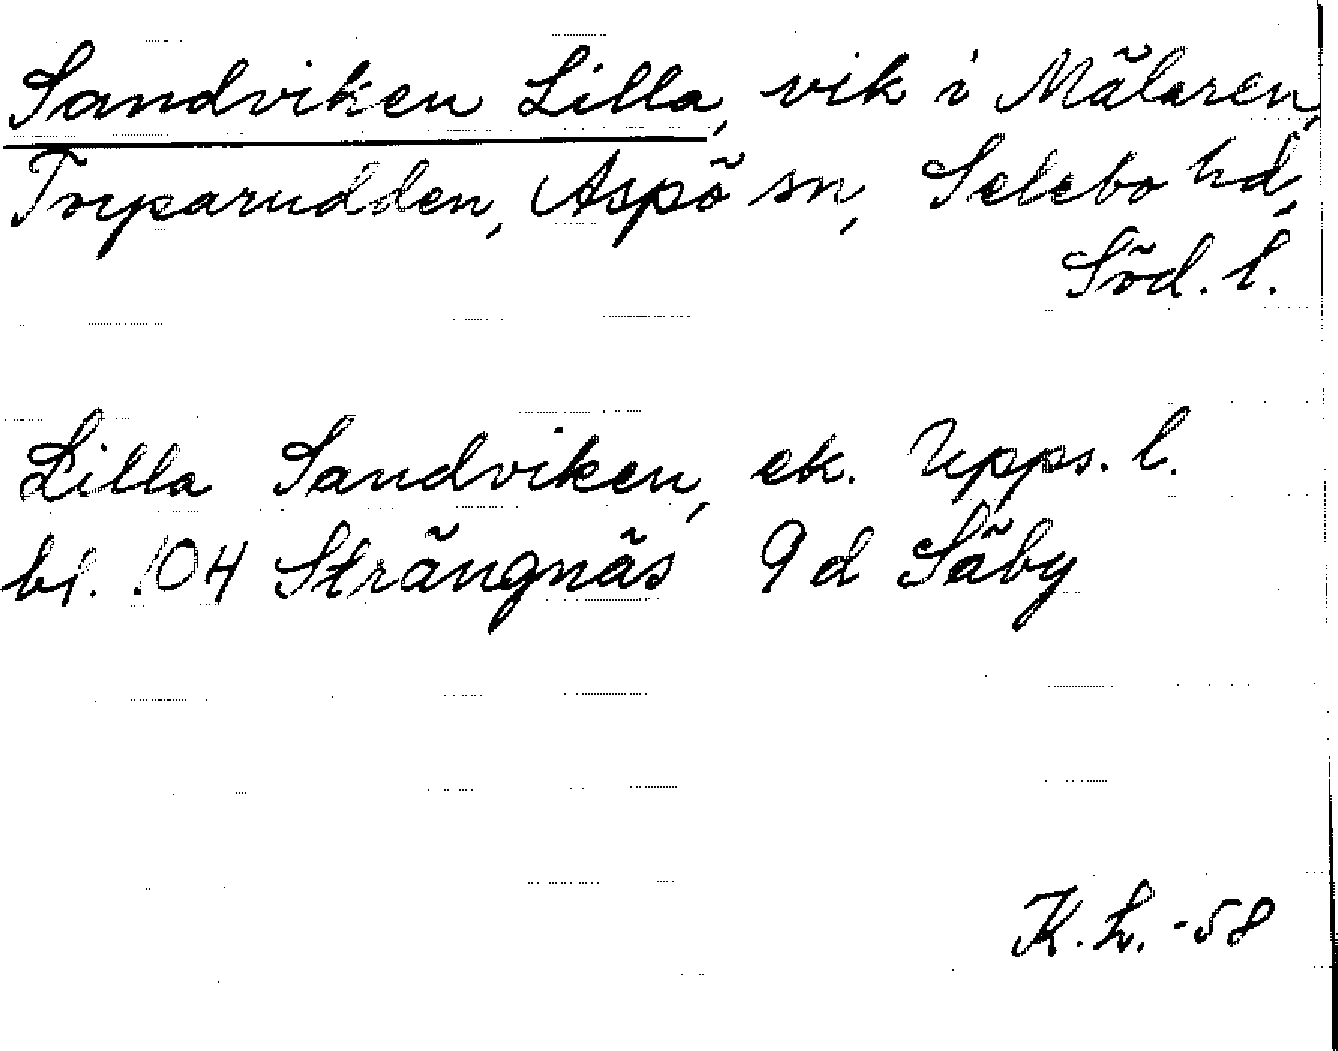 Sandviken Lilla, vik i Mälaren,
Torparudden, Aspö sn, Selebo hd,
Söd. l.
Lilla Sandviken, ek. Upps. l.
bl. 104 Strängnäs 9 d Säby
K. L. -58